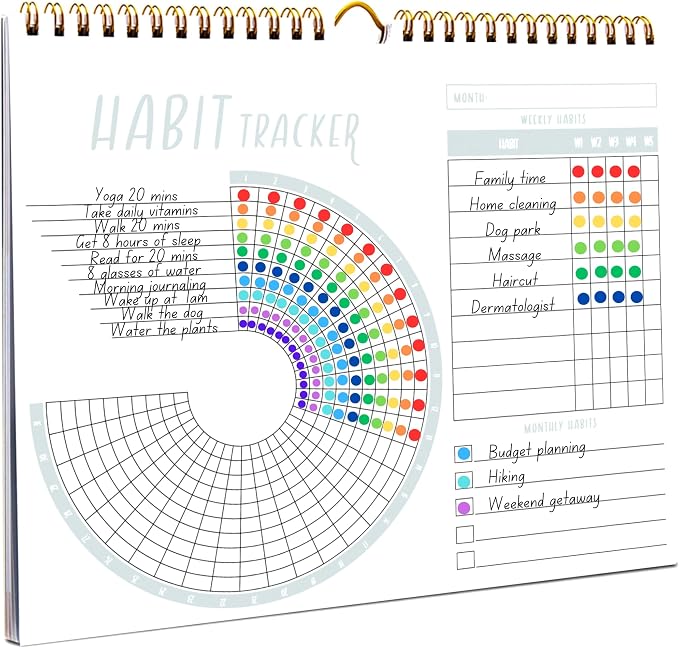 HABIT TRACKER
Yoga 20 mins
Take daily vitamins
Walk 20 mins
Get 8 hours of sleep
Read for 20 mins
8 glasses of water
Morning journaling
Wake up at 1am
Walk the dog
Water the plants
1 2 3 4 5 6 7 8 9 10 11 12 13
MONTH:
WEEKLY HABITS
HABIT W1 W2 W3 W4 W5
Family time
Home cleaning
Dog park
Massage
Haircut
Dermatologist
MONTHLY HABITS
Budget planning
Hiking
Weekend getaway